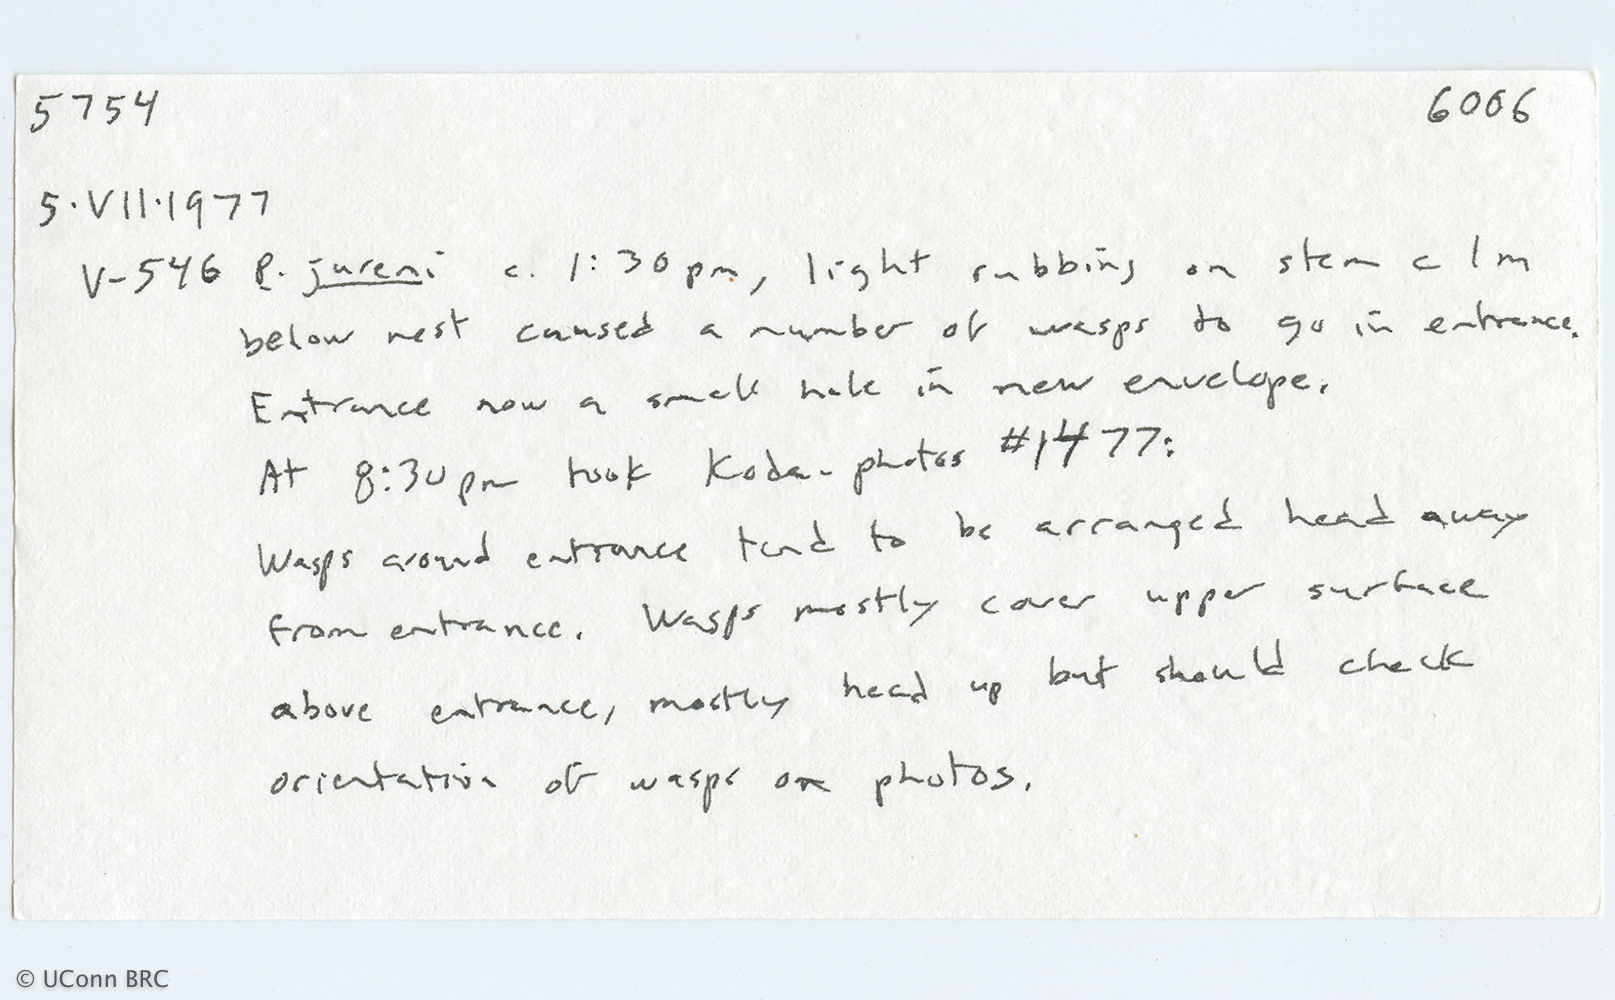 5754 6006
5·VII·1977
V-546 P. jureni c. 1:30pm, light rubbing on stem c 1m
below nest caused a number of wasps to go in entrance.
Entrance now a small hole in new envelope.
At 8:30pm took Koda-photos #1477:
Wasps around entrance tend to be arranged head away
from entrance. Wasps mostly cover upper surface
above entrance, mostly head up but should check
orientation of wasps on photos.
© UConn BRC